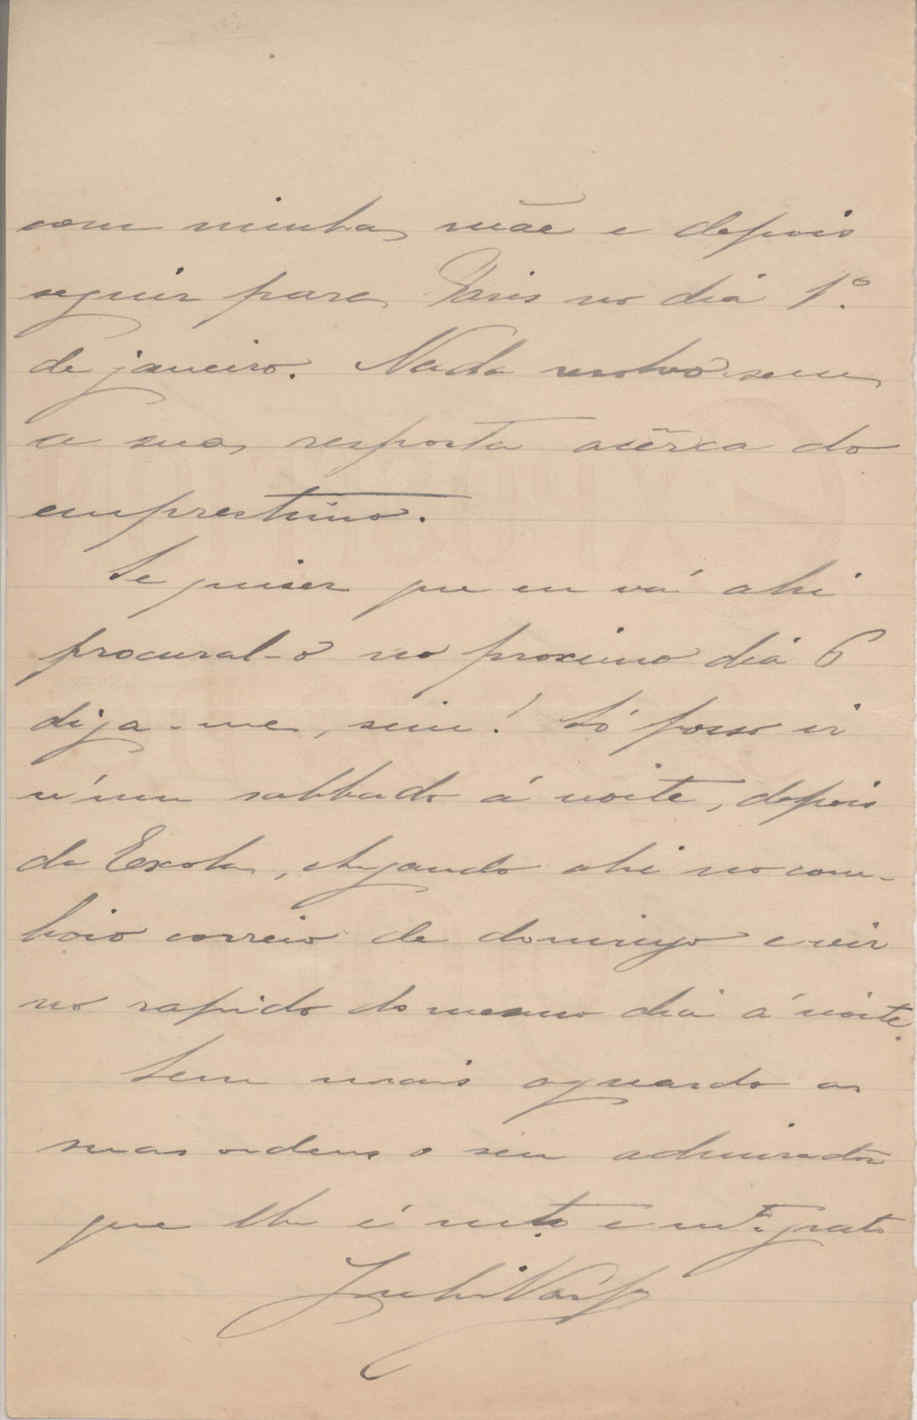 com minha mãe e depois
seguir para Paris no dia 1º
de janeiro. Nada resolvo sem
a sua resposta acêrca do
emprestimo.
Se quizer que eu vá ahi
procural-o no proximo dia 6
diga-me, sim! Só posso ir
n'um sabbado á noite, depois
da Escola, chegando ahi no com-
boio correio de domingo e vir
no rapido do mesmo dia á noite.
Sem mais aguardo as
suas ordens o seu admirador
que lhe é mto e mto grato